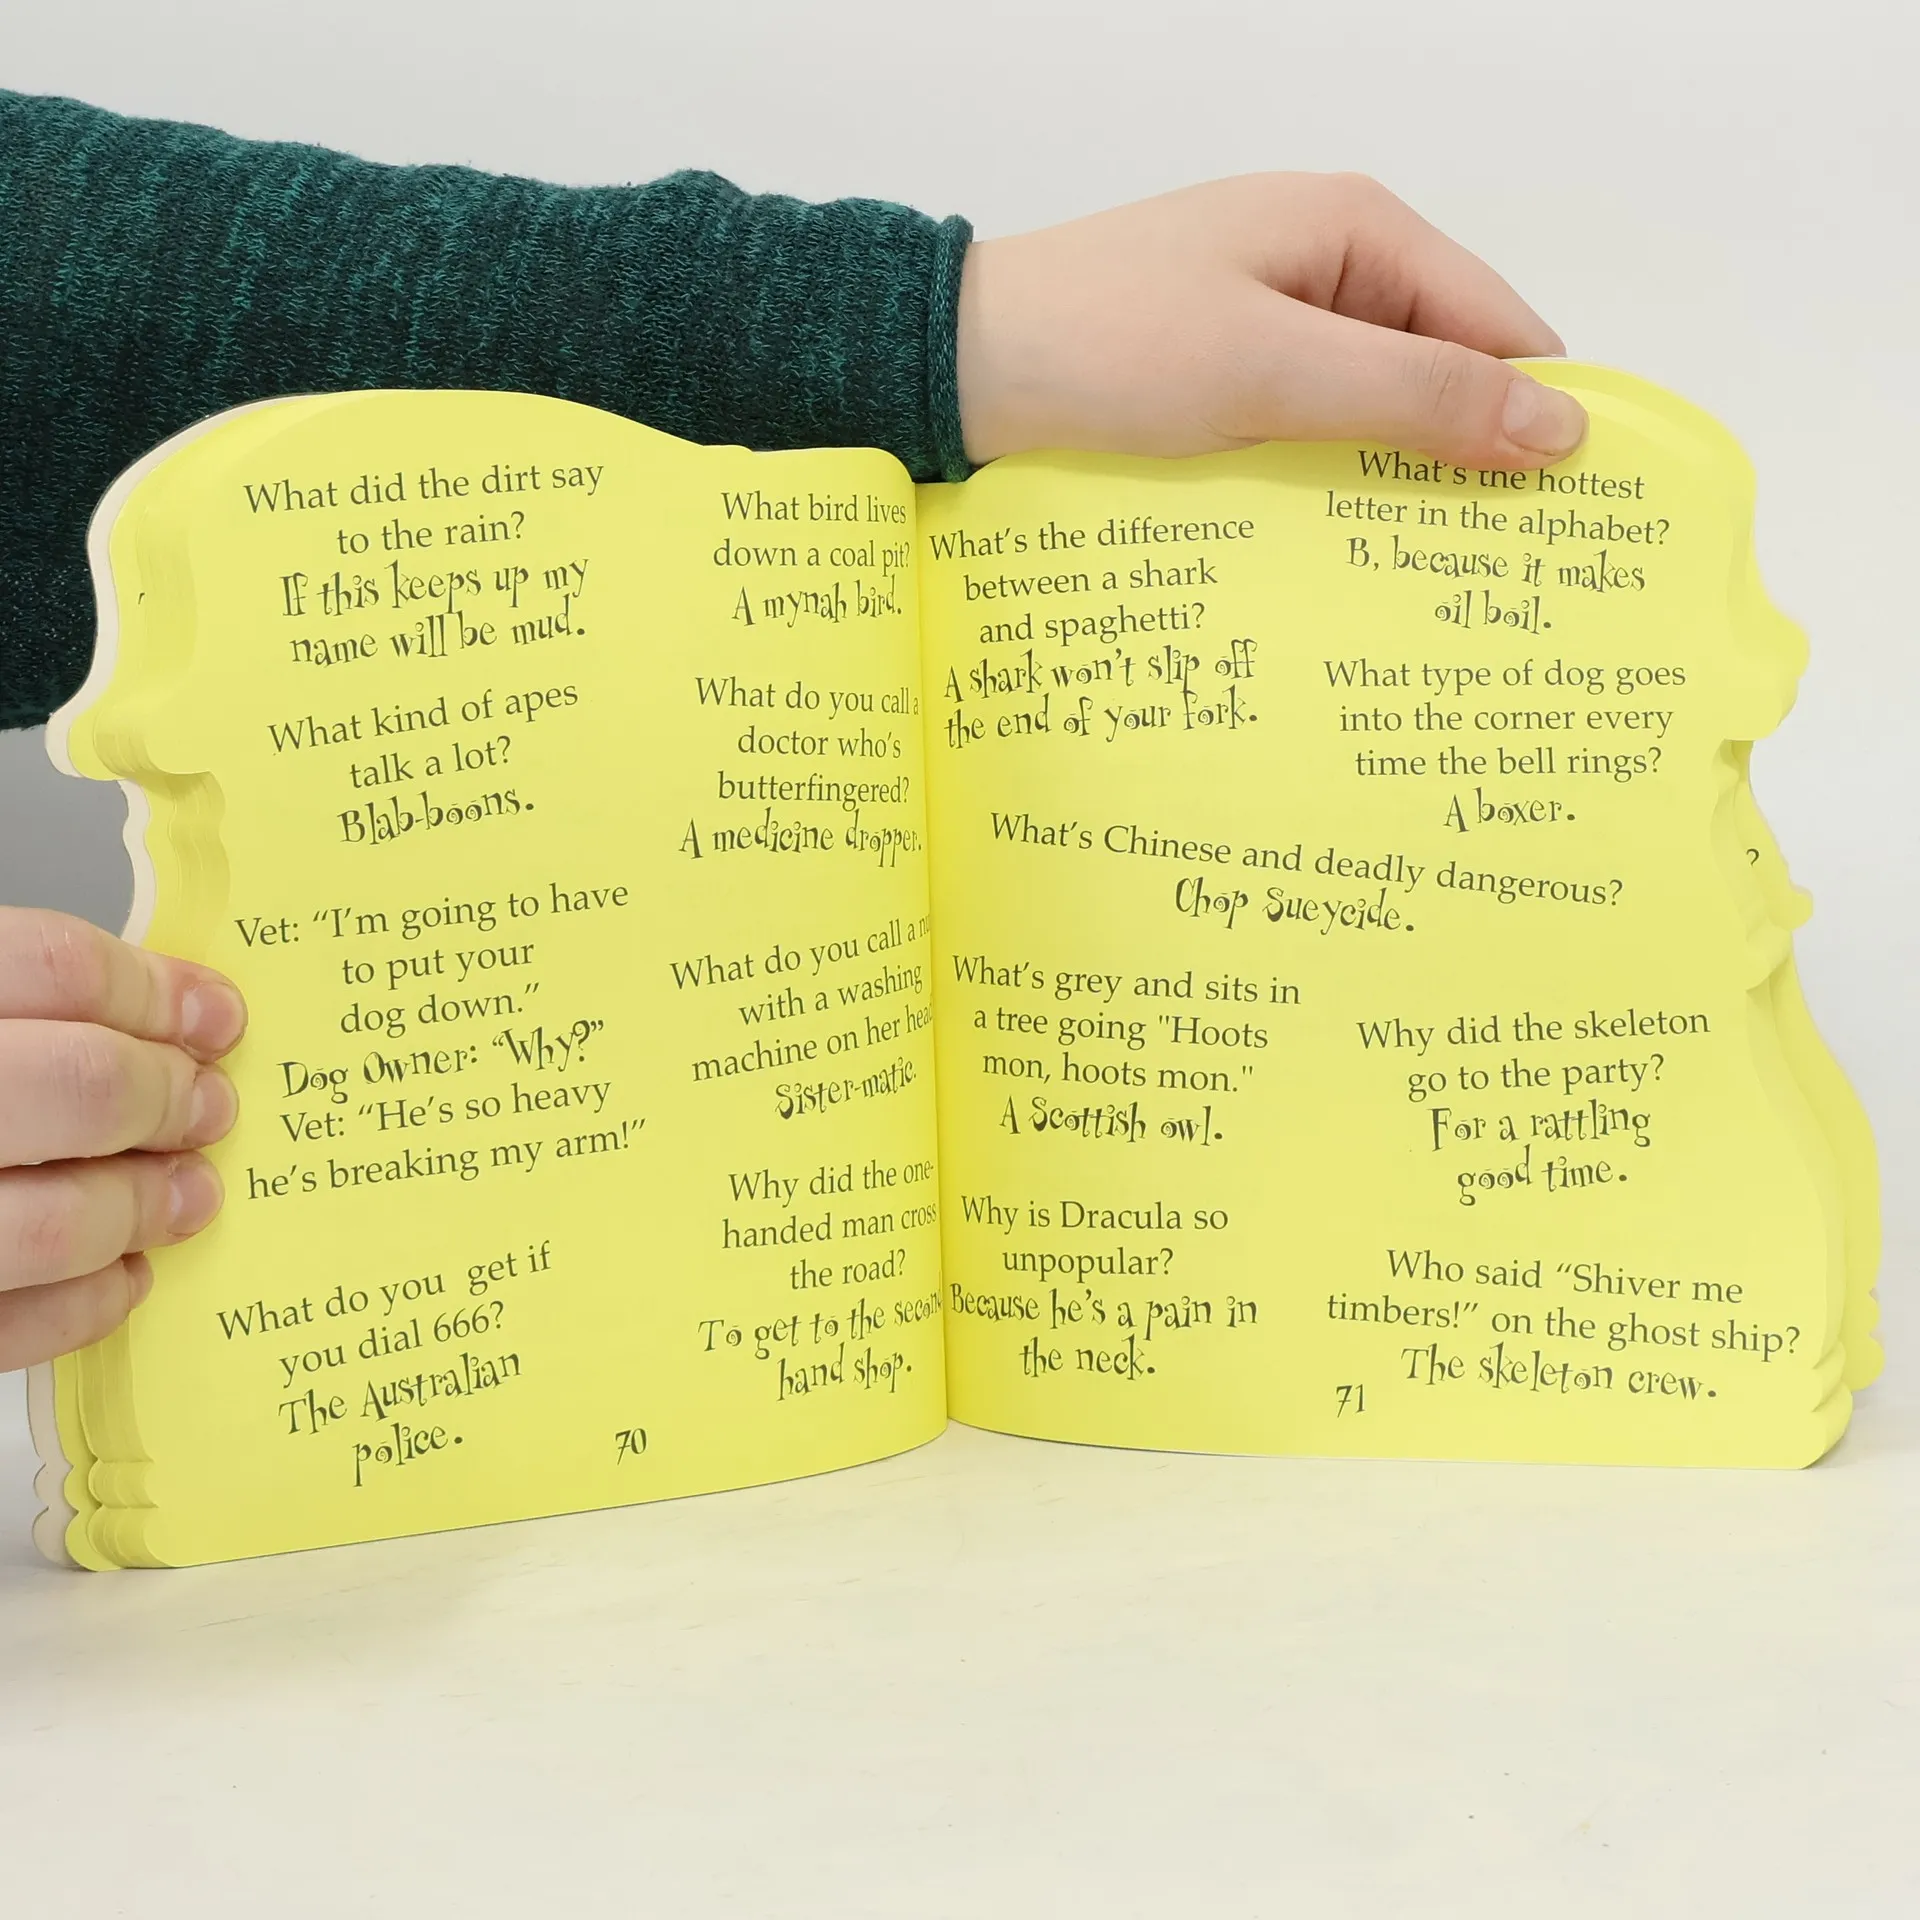 What did the dirt say
to the rain?
If this keeps up my
name will be mud.
What kind of apes
talk a lot?
Blab-boons.
Vet: “I’m going to have
to put your
dog down.”
Dog Owner: “Why?”
Vet: “He’s so heavy
he’s breaking my arm!”
What do you get if
you dial 666?
The Australian
police.
What bird lives
down a coal pit?
A mynah bird.
What do you call a
doctor who’s
butterfingered?
A medicine dropper.
What do you call a
with a washing
machine on her head
Sister-matic.
Why did the one-
handed man cross
the road?
To get to the second
hand shop.
70
What’s the difference
between a shark
and spaghetti?
A shark won’t slip off
the end of your fork.
What’s the hottest
letter in the alphabet?
B, because it makes
oil boil.
What type of dog goes
into the corner every
time the bell rings?
A boxer.
What’s Chinese and deadly dangerous?
Chop Sueycide.
What’s grey and sits in
a tree going "Hoots
mon, hoots mon."
A Scottish owl.
Why is Dracula so
unpopular?
Because he’s a pain in
the neck.
Why did the skeleton
go to the party?
For a rattling
good time.
Who said “Shiver me
timbers!” on the ghost ship?
The skeleton crew.
71
?